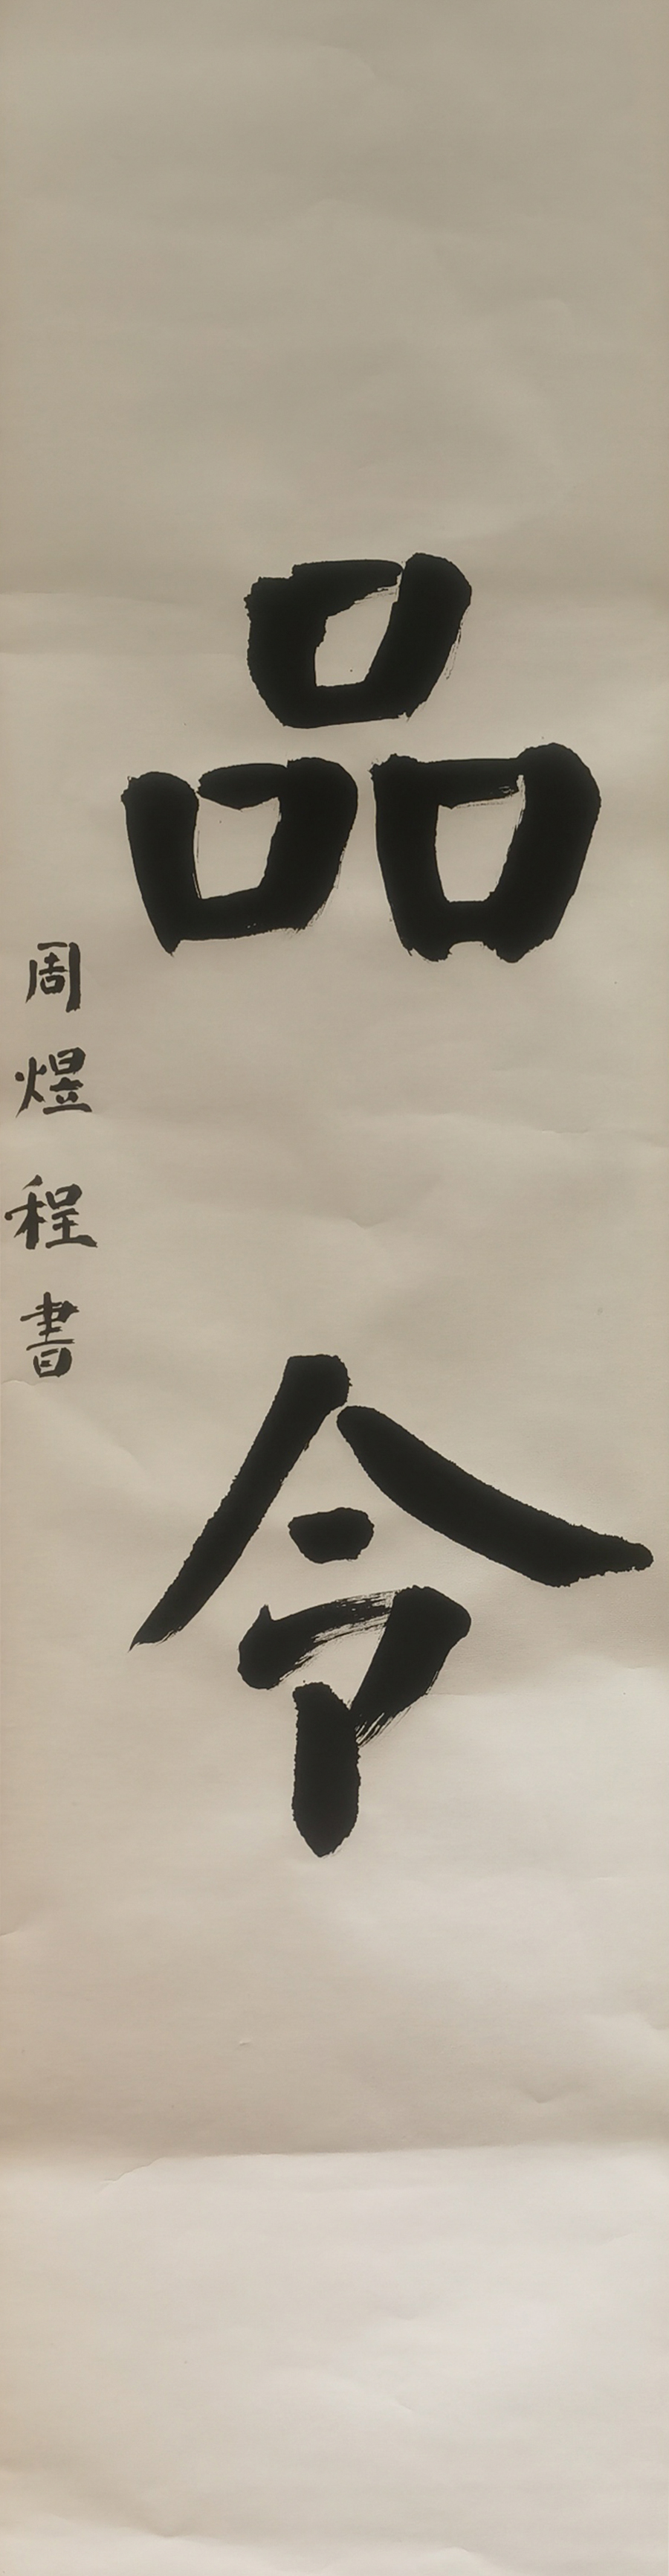 品令
周煜程書